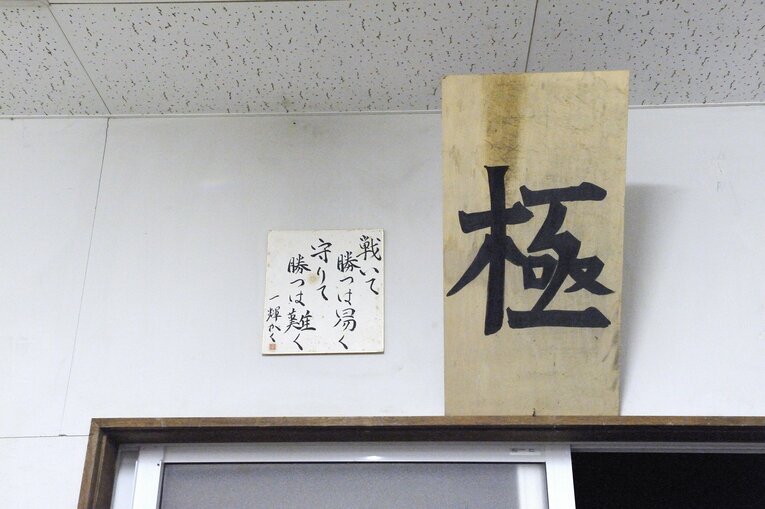 極
戦いて
勝つは易く
守りて
勝つは難く
一輝かく